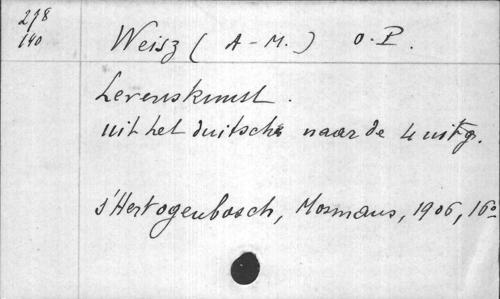 278
140
Weisz ( A-M. ) O.P.
Levenskunst.
uit het duitsch naar de 4 uitg.
s'Hertogenbosch, Mosmans, 1906, 16o